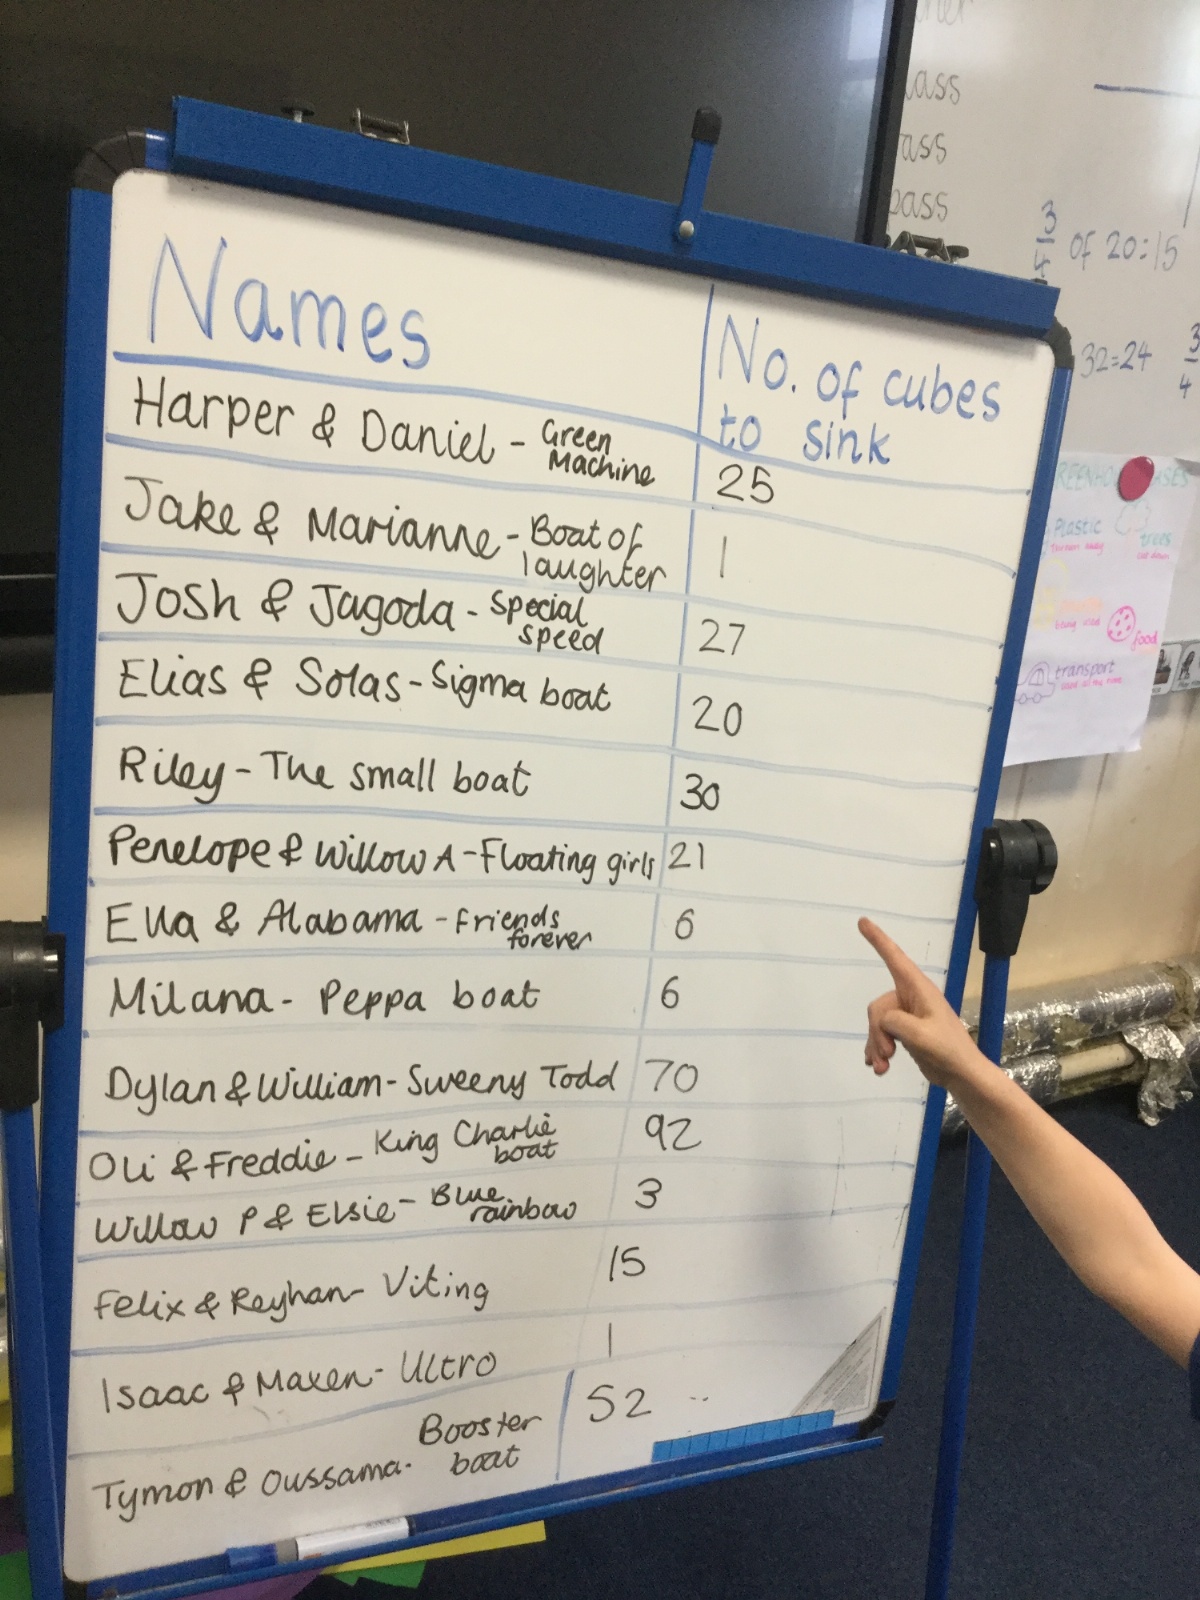 Names
No. of cubes
to sink
Harper & Daniel - Green
Machine
25
Jake & Marianne - Boat of
laughter
1
Josh & Jagoda - Special
speed
27
Elias & Solas - Sigma boat
20
Riley - The small boat
30
Penelope & Willow A - Floating girls
21
Ella & Alabama - Friends
forever
6
Milana - Peppa boat
6
Dylan & William - Sweeny Todd
70
Oli & Freddie - King Charlie
boat
92
Willow P & Elsie - Blue
rainbow
3
Felix & Reyhan - Viting
15
Isaac & Maxen - Ultro
1
Tymon & Oussama. Booster
boat
52
ass
ass
pass
3/4 of 20 = 15
32 = 24
3/4
Plastic
trees
cut down
food
transport